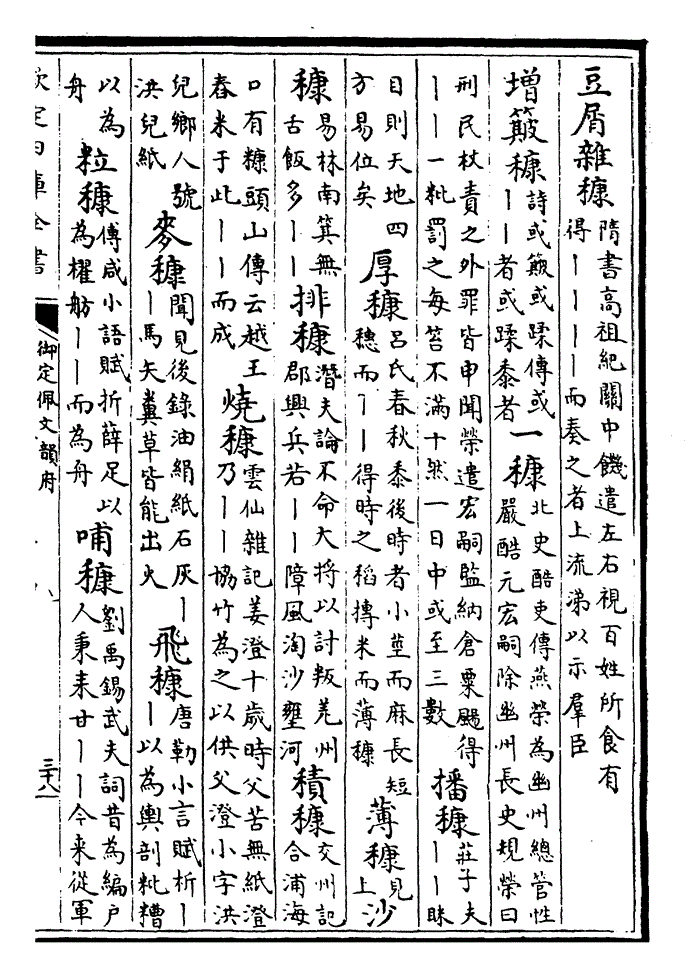 豆屑雜穅隋書高祖紀關中饑遣左右視百姓所食有得丨丨丨丨而奏之者上流涕以示羣臣
增簸穅詩或簸或蹂傳或丨丨者或蹂黍者一穅北史酷吏傳燕榮為幽州總管性嚴酷元宏嗣除幽州長史規榮曰
刑民杖責之外罪皆申聞榮遣宏嗣監納倉粟颺得丨丨一粃罰之每笞不滿十然一日中或至三數播穅莊子夫丨丨眯
目則天地四方易位矣厚穅呂氏春秋黍後時者小莖而麻長短穗而丨丨得時之稻摶米而薄穅薄穅見上沙
穅易林南箕無舌飯多丨丨排穅潛夫論不命大將以討叛羌州郡興兵若丨丨障風淘沙壅河積穅交州記合浦海
口有糠頭山傳云越王舂米于此丨丨而成燒穅雲仙雜記姜澄十歲時父苦無紙澄乃丨丨協竹為之以供父澄小字洪
兒鄉人號洪兒紙麥穅聞見後錄油絹紙石灰丨丨馬矢糞草皆能出火飛穅唐勒小言賦析丨丨以為輿剖粃糟
以為舟粒穅傅咸小語賦折薛足以為櫂舫丨丨而為舟哺穅劉禹錫武夫詞昔為編戶人秉耒甘丨丨今来從軍
欽定四庫全書
御定佩文韻府
三十八